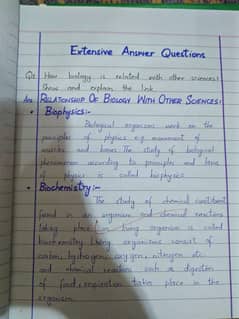 Extensive Answer Questions
Q: How biology is related with other sciences?
Show and explain the link.
Ans: RELATIONSHIP OF BIOLOGY WITH OTHER SCIENCES:
• Biophysics:-
Biological organisms work on the
principles of physics e.g. movement of
muscles and bones. The study of biological
phenomenon according to principles and laws
of physics is called biophysics
• Biochemistry:-
The study of chemical constituent
found in an organism and chemical reactions
taking place in living organism is called
biochemistry. Living organisms consist of
carbon, hydrogen, oxygen, nitrogen etc.
and chemical reactions such as digestion
of food, respiration takes place in the
organism.